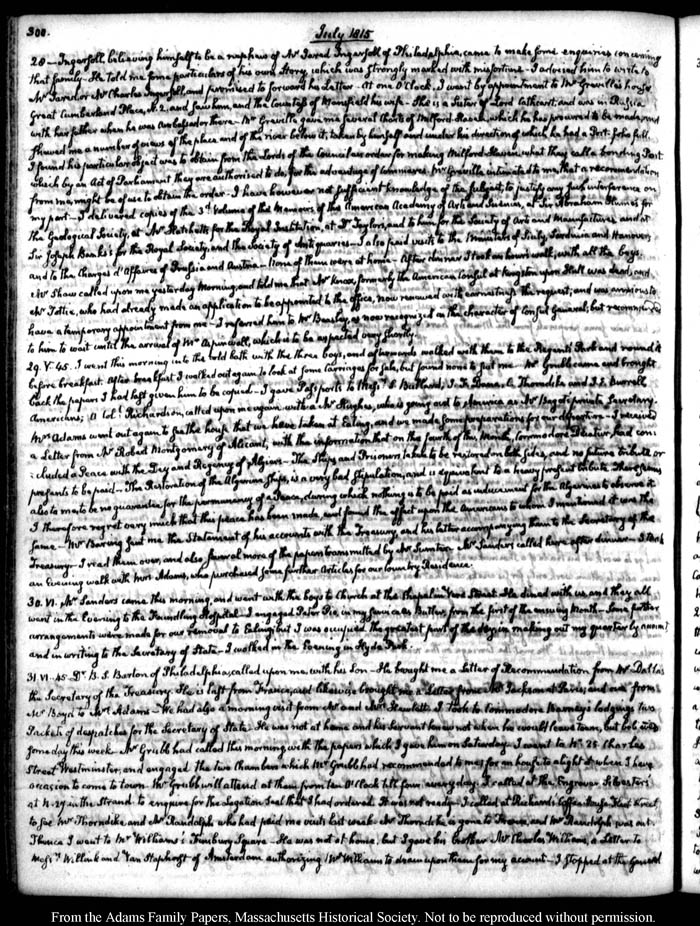 300.
July 1815
28 — Ingersoll, believing himself to be a nephew of Mr Jared Ingersoll of Philadelphia, came to make some enquiries concerning
that family — He told me some particulars of his own Story, which was strongly marked with misfortune — I advised him to write to
Mr Jared or Mr Charles Ingersoll, and promised to forward his Letter. At one O'Clock, I went by appointment to Mr Greville's house
Great Cumberland Place, N. 2. and saw him, and the Countess of Mansfield his wife — She is a Sister of Lord Cathcart, and was in Russia
with her father when he was Ambassador there — Mr Greville gave me several Charts of Milford Haven, which he has procured to be made, and
shewed me a number of views of the place and of the river before it, taken by himself and under his direction, of which he had a Port-folio full.
I found his particular object was to obtain from the Lords of the Council an order for making Milford Haven, what they call a bonding Port
which by an Act of Parliament they are authorised to do, for the advantage of commerce. Mr Greville intimated to me, that a recommendation
from me, might be of use to obtain the order — I have however not sufficient knowledge of the subject, to justify any such interference on
my part — I delivered copies of the 3d Volume of the Memoirs, of the American Academy of Arts and Sciences, at Sr Abraham Humes for
the Geological Society, at Mr Hatchetts for the Royal Institution, at Dr Taylors, and to him for the Society of Arts and Manufactures and at
Sir Joseph Banks's for the Royal Society, and the Society of Antiquaries — I also paid visits to the Ministers of Sicily, Sardinia and Hanover,
and to the Chargés d'Affaires of Prussia and Austria — None of them were at home — After dinner I took an hour's walk, with all the boys.
Mr Shaw called upon me yesterday Morning, and told me that Mr Knox, formerly the American Consul at Kingston upon Hull was dead, and
Mr Tottie, who had already made an application to be appointed to the office, now renewed with earnestness the request, and was anxious to
have a temporary appointment from me — I referred him to Mr Beasley, as now recognized in the character of Consul General; but recommended
to him to wait until the arrival of Mr Aspinwall, which is to be expected very shortly.
29. V:45. I went this morning into the cold bath with the three boys, and afterwards walked with them to the Regents Park and round it
before breakfast. After breakfast I walked out again to look at some Carriages for sale, but found none to suit me — Mr Grubb came and brought
back the papers I had left given him to be copied — I gave Passports to Messrs E Bullard, J. F Deane, C. Thorndike and J. I. Burrell
Americans; A Coll Richardson, called upon me again with a Mr Hughes, who is going out to America as Mr Bagot's private Secretary.
Mrs Adams went out again to see the house that we have taken at Ealing, and we made some preparations for our departure — I received
a Letter from Mr Robert Montgomery of Alicant, with the information that on the fourth of this Month, Commodore Decatur, had con-
cluded a Peace with the Dey and Regency of Algiers — The Ships and Prisoners taken to be restored on both sides, and no future tribute or
presents to be paid — The Restoration of the Algerine Ships, is a very bad stipulation, and is equivalent to a heavy present tribute. There seems
also to me to be no guarantee for the permanency of a Peace, during which nothing is to be paid as inducement for the Algerines to observe it
I therefore regret very much that this peace has been made, and found the effect upon the Americans to whom I mentioned it was the
same — Mr Baring sent me the Statement of his accounts with the Treasury, and his letter accompanying them to the Secretary of the
Treasury — I read them over, and also several more of the papers transmitted by Mr Sumter — Mr Sanders called here after dinner — I took
an Evening walk with Mrs Adams, who purchased some further Articles for our Country Residence.
30. VI. Mr Sanders came this morning, and went with the boys to Church at the Chapel in Street. He dined with us, and they all
went in the Evening to the Foundling Hospital — I engaged Peter in my service as Butler, from the first of the ensuing Month — Some further
arrangements were made for our removal to Ealing; but I was occupied the greatest part of the day in making out my quarterly account
and in writing to the Secretary of State — I walked in the Evening in Hyde Park.
31. VI:45. Dr B. S. Barton of Philadelphia, called upon me with his Son — He brought me a Letter of Recommendation from Mr Dallas
the Secretary of the Treasury. He is last from France, and likewise brought me a Letter from Mr Jackson at Paris, and one from
Mr Boyd to Mrs Adams — We had also a morning visit from Mr and Mrs Hewlett. I took to Commodore Barney's lodgings two
Packets of despatches for the Secretary of State. He was not at home and his servant knew not when he would leave town, but
some day this week. Mr Grubb had called this morning with the papers which I gave him on Saturday. I went to No 25 Charles
Street Westminster, and engaged the two Chambers which Mr Grubb had recommended to me, for an house to alight at when I have
occasion to come to town. Mr Grubb will attend at them from ten O'Clock till four every day. I called at the Engraver Silvester's
at N. 27 in the Strand to enquire for the Legation Seal that I had ordered. It was not ready — I called at Richard's Coffee-house Fleet Street
to see Mr Thorndike and Mr Randolph who had paid me visits last week. Mr Thorndike is gone to France, and Mr Randolph was out.
Thence I went to Mr Williams's Finsbury Square — He was not at home, but I gave his brother Mr Charles Williams, a Letter to
Messrs Willink and Van Staphorst of Amsterdam authorizing Mr Williams to draw upon them for my account — I stopped at the General
From the Adams Family Papers, Massachusetts Historical Society. Not to be reproduced without permission.